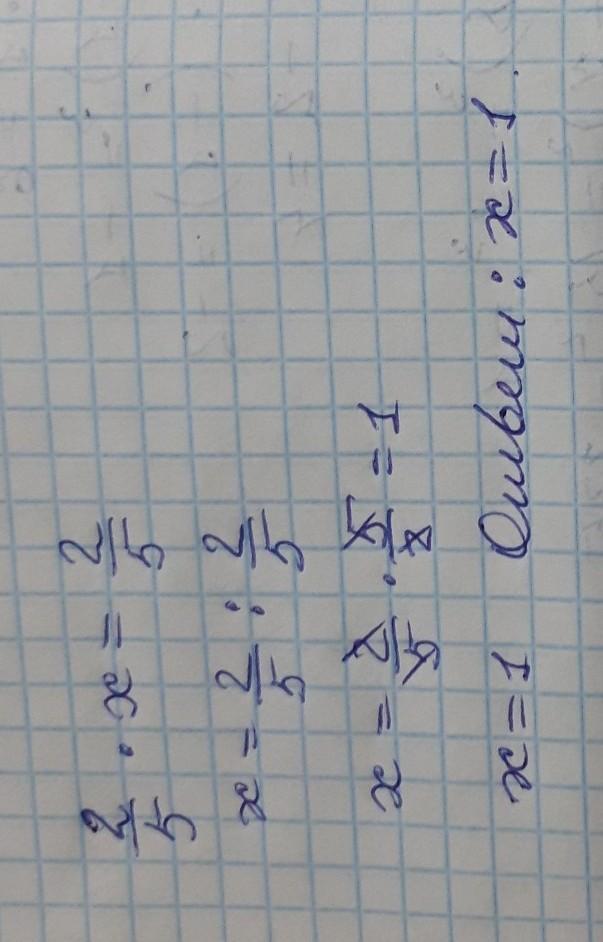 2/5 · x = 2/5
x = 2/5 : 2/5
x = 2/5 · 5/2 = 1
x = 1 Ответ: x = 1.